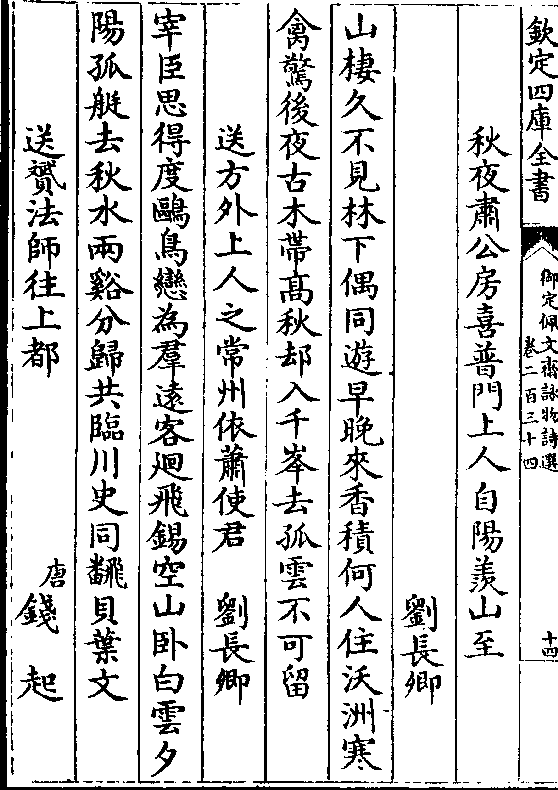 欽定四庫全書
御定佩文齋詠物詩選
卷二百三十四
十四
秋夜肅公房喜普門上人自陽羨山至
劉長卿
山棲久不見林下偶同遊早晚來香積何人住沃洲寒
禽驚後夜古木帶髙秋却入千峯去孤雲不可留
送方外上人之常州依蕭使君 劉長卿
宰臣思得度鷗鳥戀為羣遠客廻飛錫空山卧白雲夕
陽孤艇去秋水兩谿分歸共臨川史同翻貝葉文
送贇法師往上都 唐 錢起